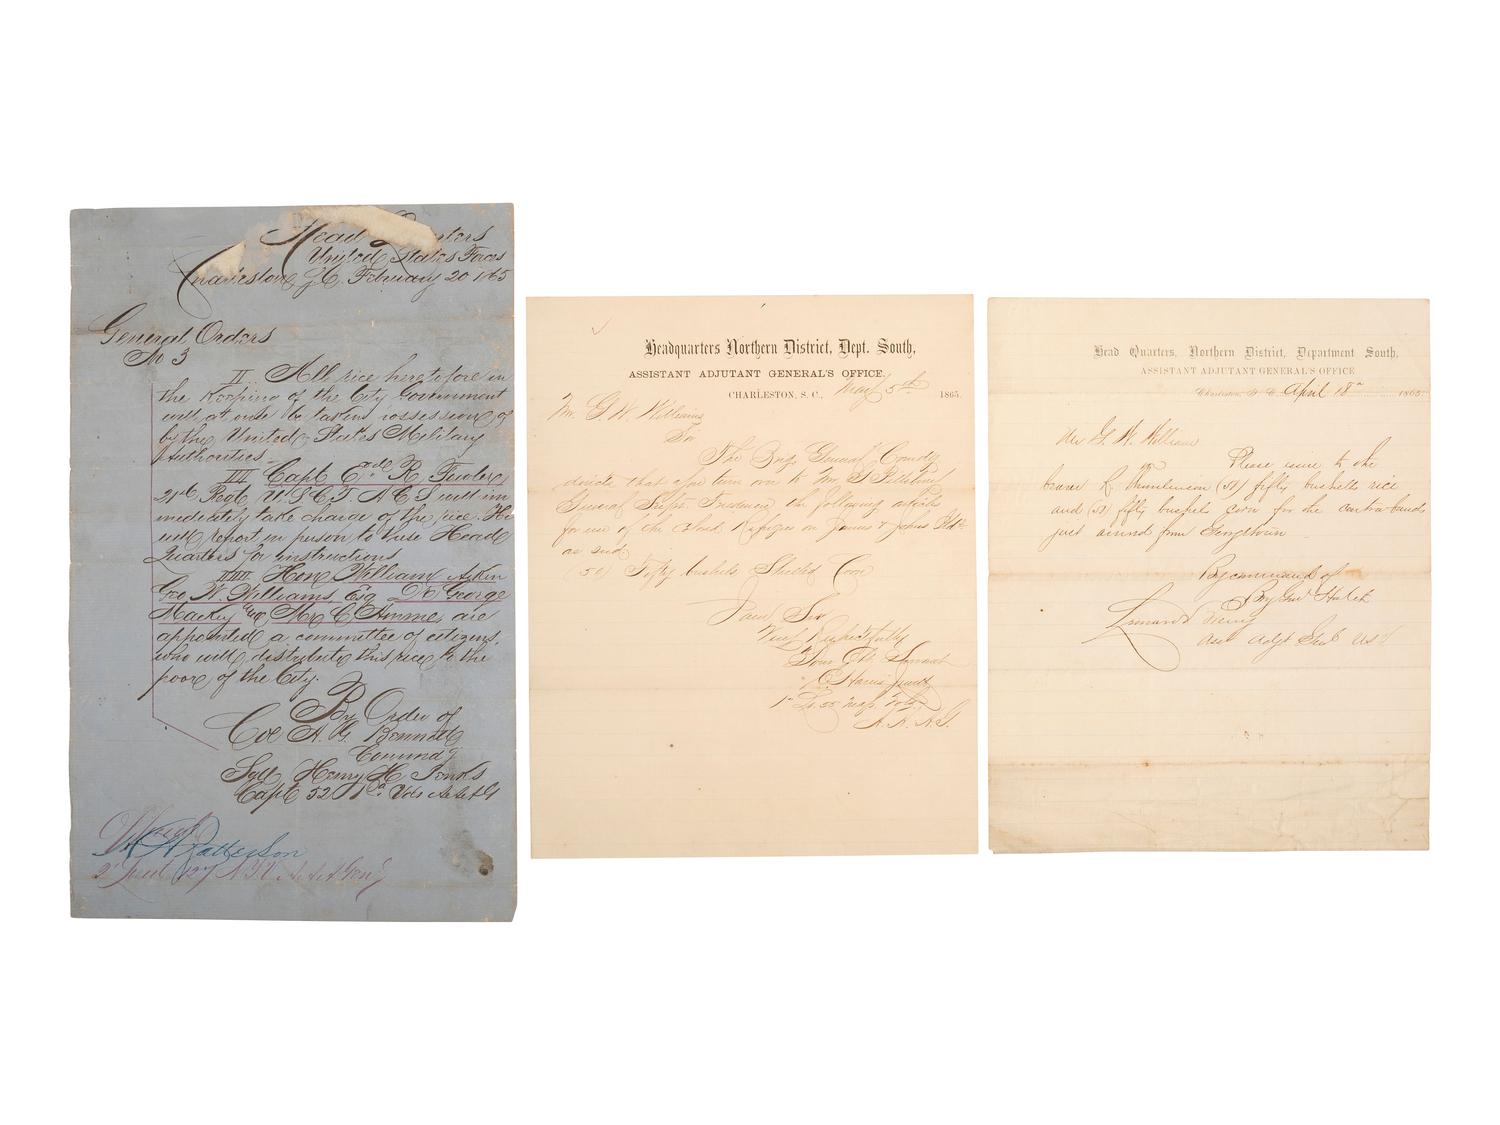 Head Quarters
United States Forces
Charleston S.C. February 20 1865
General Orders
No 3
II. All rice heretofore in
the Keeping of the City Government
will at once be taken possession of
by the United States Military
Authorities.
III Capt R. Fowler
21st Regt U.S.C.T. A.C.S will im
mediately take charge of the rice. He
will report in person to these Head
Quarters for instructions
IIII Hon William Aiken
Geo W. Williams Esq Dr George
Mackey and Mr C. are
appointed a committee of citizens,
who will distribute this rice to the
poor of the City.
By Order of
Col A. G. Bennett
Comndg
Sgd Henry H. Jenks
Capt 52 Pa Vols
Patterson
127 N.Y.V.
Headquarters Northern District, Dept. South,
ASSISTANT ADJUTANT GENERAL'S OFFICE,
CHARLESTON, S. C., May 5th 1865.
Mr. G W Williams
Sir
The Brig. General Comdg
directs that you turn over to Mr
General Supt. Freedmen the following articles
for use of the Refugees on James &
as
(50) Fifty bushels Shelled Corn
I am Sir
Very Respectfully
Your Obt Servant
1st Lt. 55 Mass. Vols
Head Quarters, Northern District, Department South,
ASSISTANT ADJUTANT GENERAL'S OFFICE
Charleston, S. C. April 18th 1865
Mr G. W. William
Please issue to the
bearer (50) fifty bushels rice
and (50) fifty bushels corn for the contrabands
just arrived from Georgetown
By command of
Brig Gen Hatch
Leonard
Asst Adjt Genl